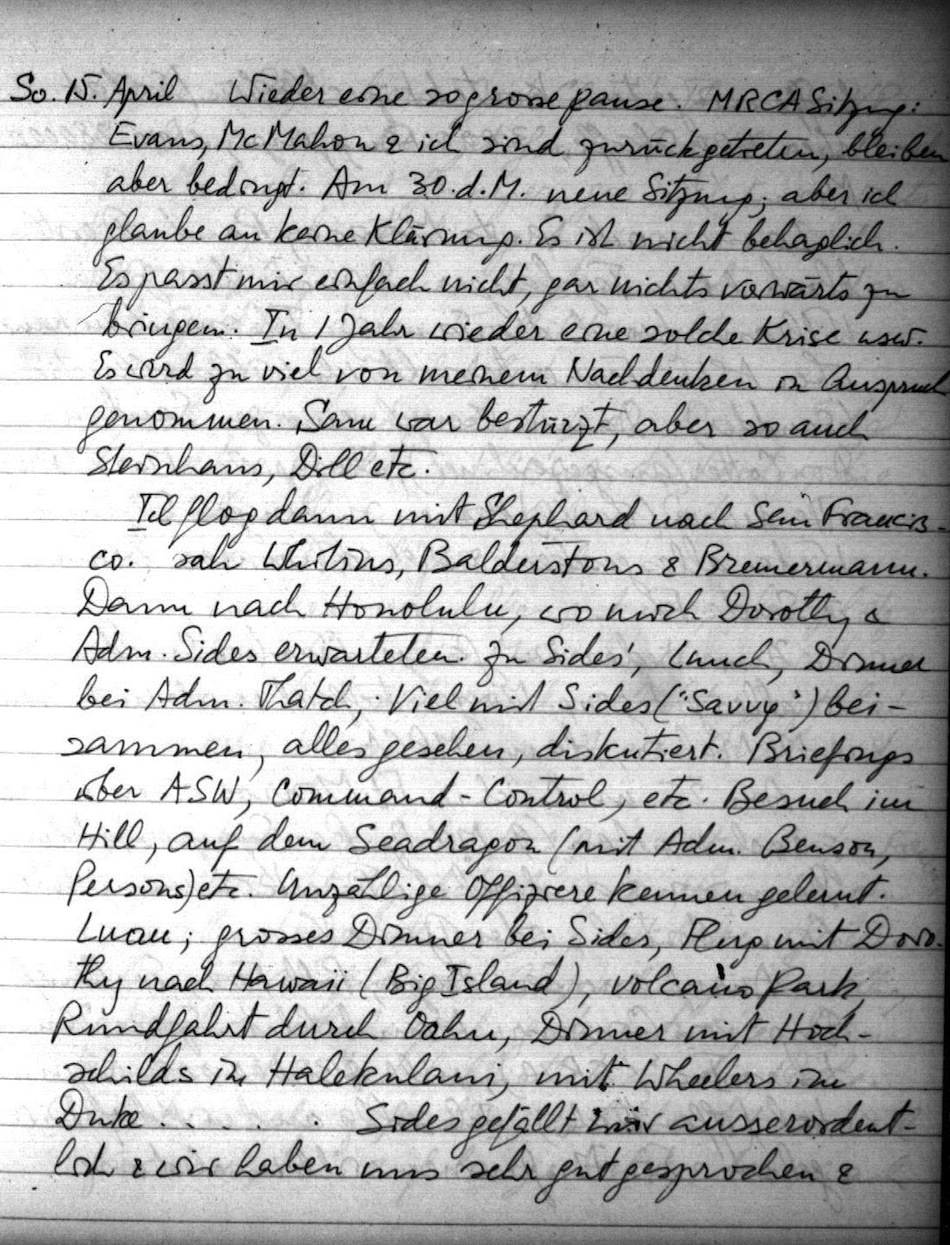 So. 15. April Wieder eine so grosse Pause. MRCA Sitzung:
Evans, McMahon & ich sind zurückgetreten, bleiben
aber bedingt. Am 30. d. M. neue Sitzung; aber ich
glaube an keine Klärung. Es ist nicht behaglich.
Es passt mir einfach nicht, gar nichts vorwärts zu
bringen. In 1 Jahr wieder eine solche Krise usw.
Es wird zu viel von meinem Nachdenken in Anspruch
genommen. Sam war bestürzt, aber so auch
Steinhaus, Dill etc.
Ich flog dann mit Shephard nach San Francis-
co. sah Balderstons & Bremermann.
Dann nach Honolulu, wo mich Dorothy &
Adm. Sides erwarteten. Zu Sides', Lunch, Dinner
bei Adm. Thatch; Viel mit Sides ("Savvy") bei-
sammen, alles gesehen, diskutiert. Briefings
über ASW, Command-Control, etc. Besuch im
Hill, auf dem Seadragon (mit Adm. Benson,
Persons) etc. Unzählige Offiziere kennen gelernt.
Luau; grosses Dinner bei Sides, Flug mit Doro-
thy nach Hawaii (Big Island), Volcano Park,
Rundfahrt durch Oahu, Dinner mit Hoch-
schilds im Halekulani, mit Wheelers im
Duke . . . . . Sides gefällt mir ausserordent-
lich & wir haben uns sehr gut gesprochen &